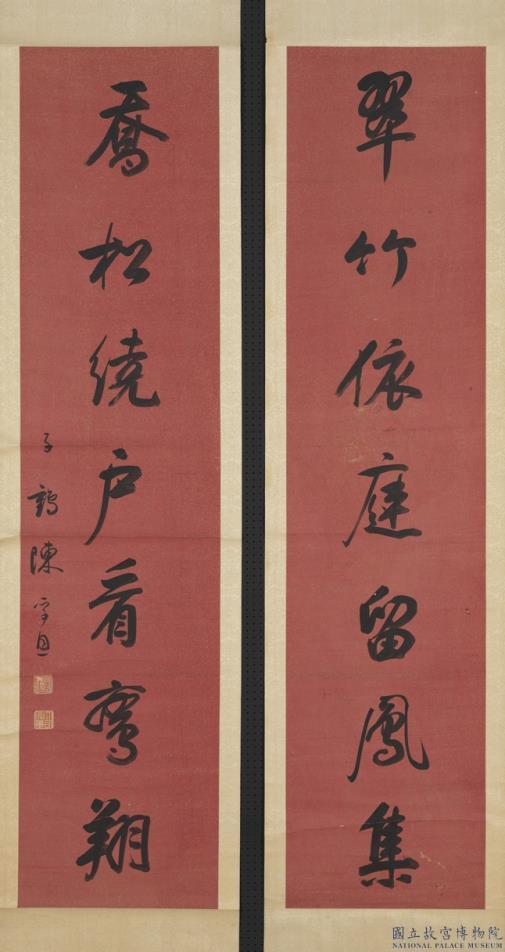 翠竹依庭留鳳集
喬松繞戶看鸞翔
子鶴陳孚恩
國立故宮博物院
NATIONAL PALACE MUSEUM